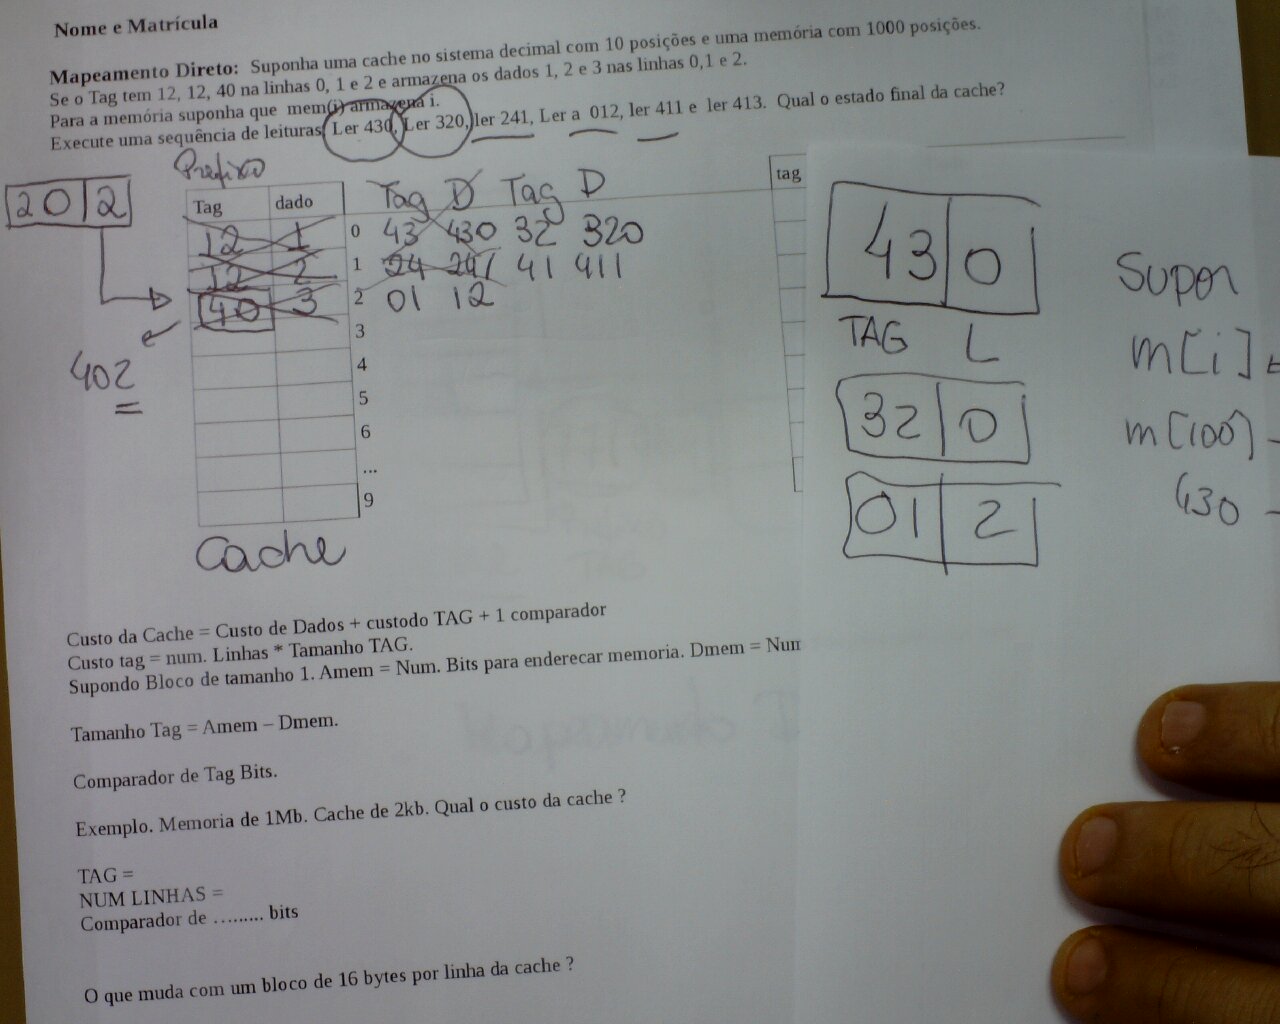 Nome e Matrícula
Mapeamento Direto: Suponha uma cache no sistema decimal com 10 posições e uma memória com 1000 posições.
Se o Tag tem 12, 12, 40 na linhas 0, 1 e 2 e armazena os dados 1, 2 e 3 nas linhas 0,1 e 2.
Para a memória suponha que mem(i) armazena i.
Execute uma sequência de leituras Ler 430, Ler 320, ler 241, Ler a 012, ler 411 e ler 413. Qual o estado final da cache?
Prefixo
20 2
Tag dado Tag D Tag D
12 1 0 43 430 32 320
12 2 1 24 241 41 411
40 3 2 01 12
402
3
4
5
6
...
9
Cache
tag
43 0
TAG L
32 0
01 2
Supor
m[i]
m[100]
430
Custo da Cache = Custo de Dados + custodo TAG + 1 comparador
Custo tag = num. Linhas * Tamanho TAG.
Supondo Bloco de tamanho 1. Amem = Num. Bits para enderecar memoria. Dmem = Num
Tamanho Tag = Amem – Dmem.
Comparador de Tag Bits.
Exemplo. Memoria de 1Mb. Cache de 2kb. Qual o custo da cache ?
TAG =
NUM LINHAS =
Comparador de ......... bits
O que muda com um bloco de 16 bytes por linha da cache ?